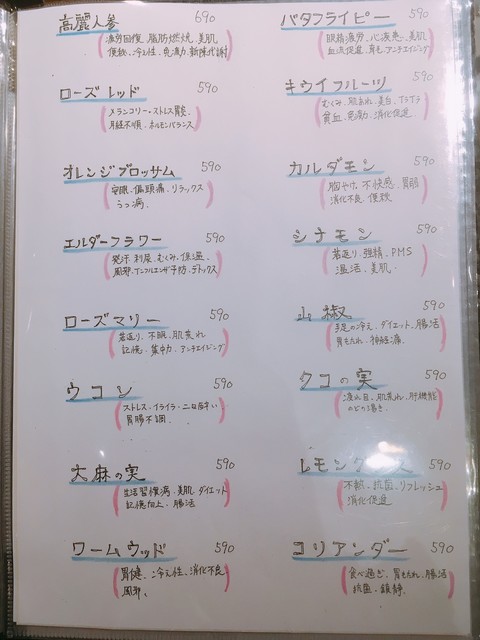 高麗人参 690
(疲労回復、脂肪燃焼、美肌
便秘、冷え性、免疫力、新陳代謝)
ローズレッド 590
(メランコリー・ストレス胃炎、
月経不順、ホルモンバランス)
オレンジブロッサム 590
(安眠、偏頭痛、リラックス
うつ病、)
エルダーフラワー 590
(発汗、利尿、むくみ、保温、
風邪、インフルエンザ予防、デトックス)
ローズマリー 590
(若返り、不眠、肌荒れ
記憶、集中力、アンチエイジング)
ウコン 590
(ストレス、イライラ・二日酔い
胃腸不調、)
大麻の実 590
(生活習慣病、美肌、ダイエット
記憶力向上、腸活)
ワームウッド 590
(胃健、冷え性、消化不良
風邪、)
バタフライピー 590
(眼精疲労、心疾患、美肌
血流促進、育毛、アンチエイジング)
キウイフルーツ 590
(むくみ、肌あれ、美白、イライラ
貧血、免疫力、消化促進、)
カルダモン 590
(胸やけ、不快感、胃腸
消化不良、便秘)
シナモン 590
(若返り、強精、PMS
温活、美肌、)
山椒 590
(手足の冷え、ダイエット、腸活
胃もたれ、神経痛、)
クコの実 590
(疲れ目、肌荒れ、肝機能
のどの渇き、)
レモングラス 590
(不眠、抗菌、リフレッシュ
消化促進)
コリアンダー 590
(食べ過ぎ、胃もたれ、腸活
抗菌、鎮静、)